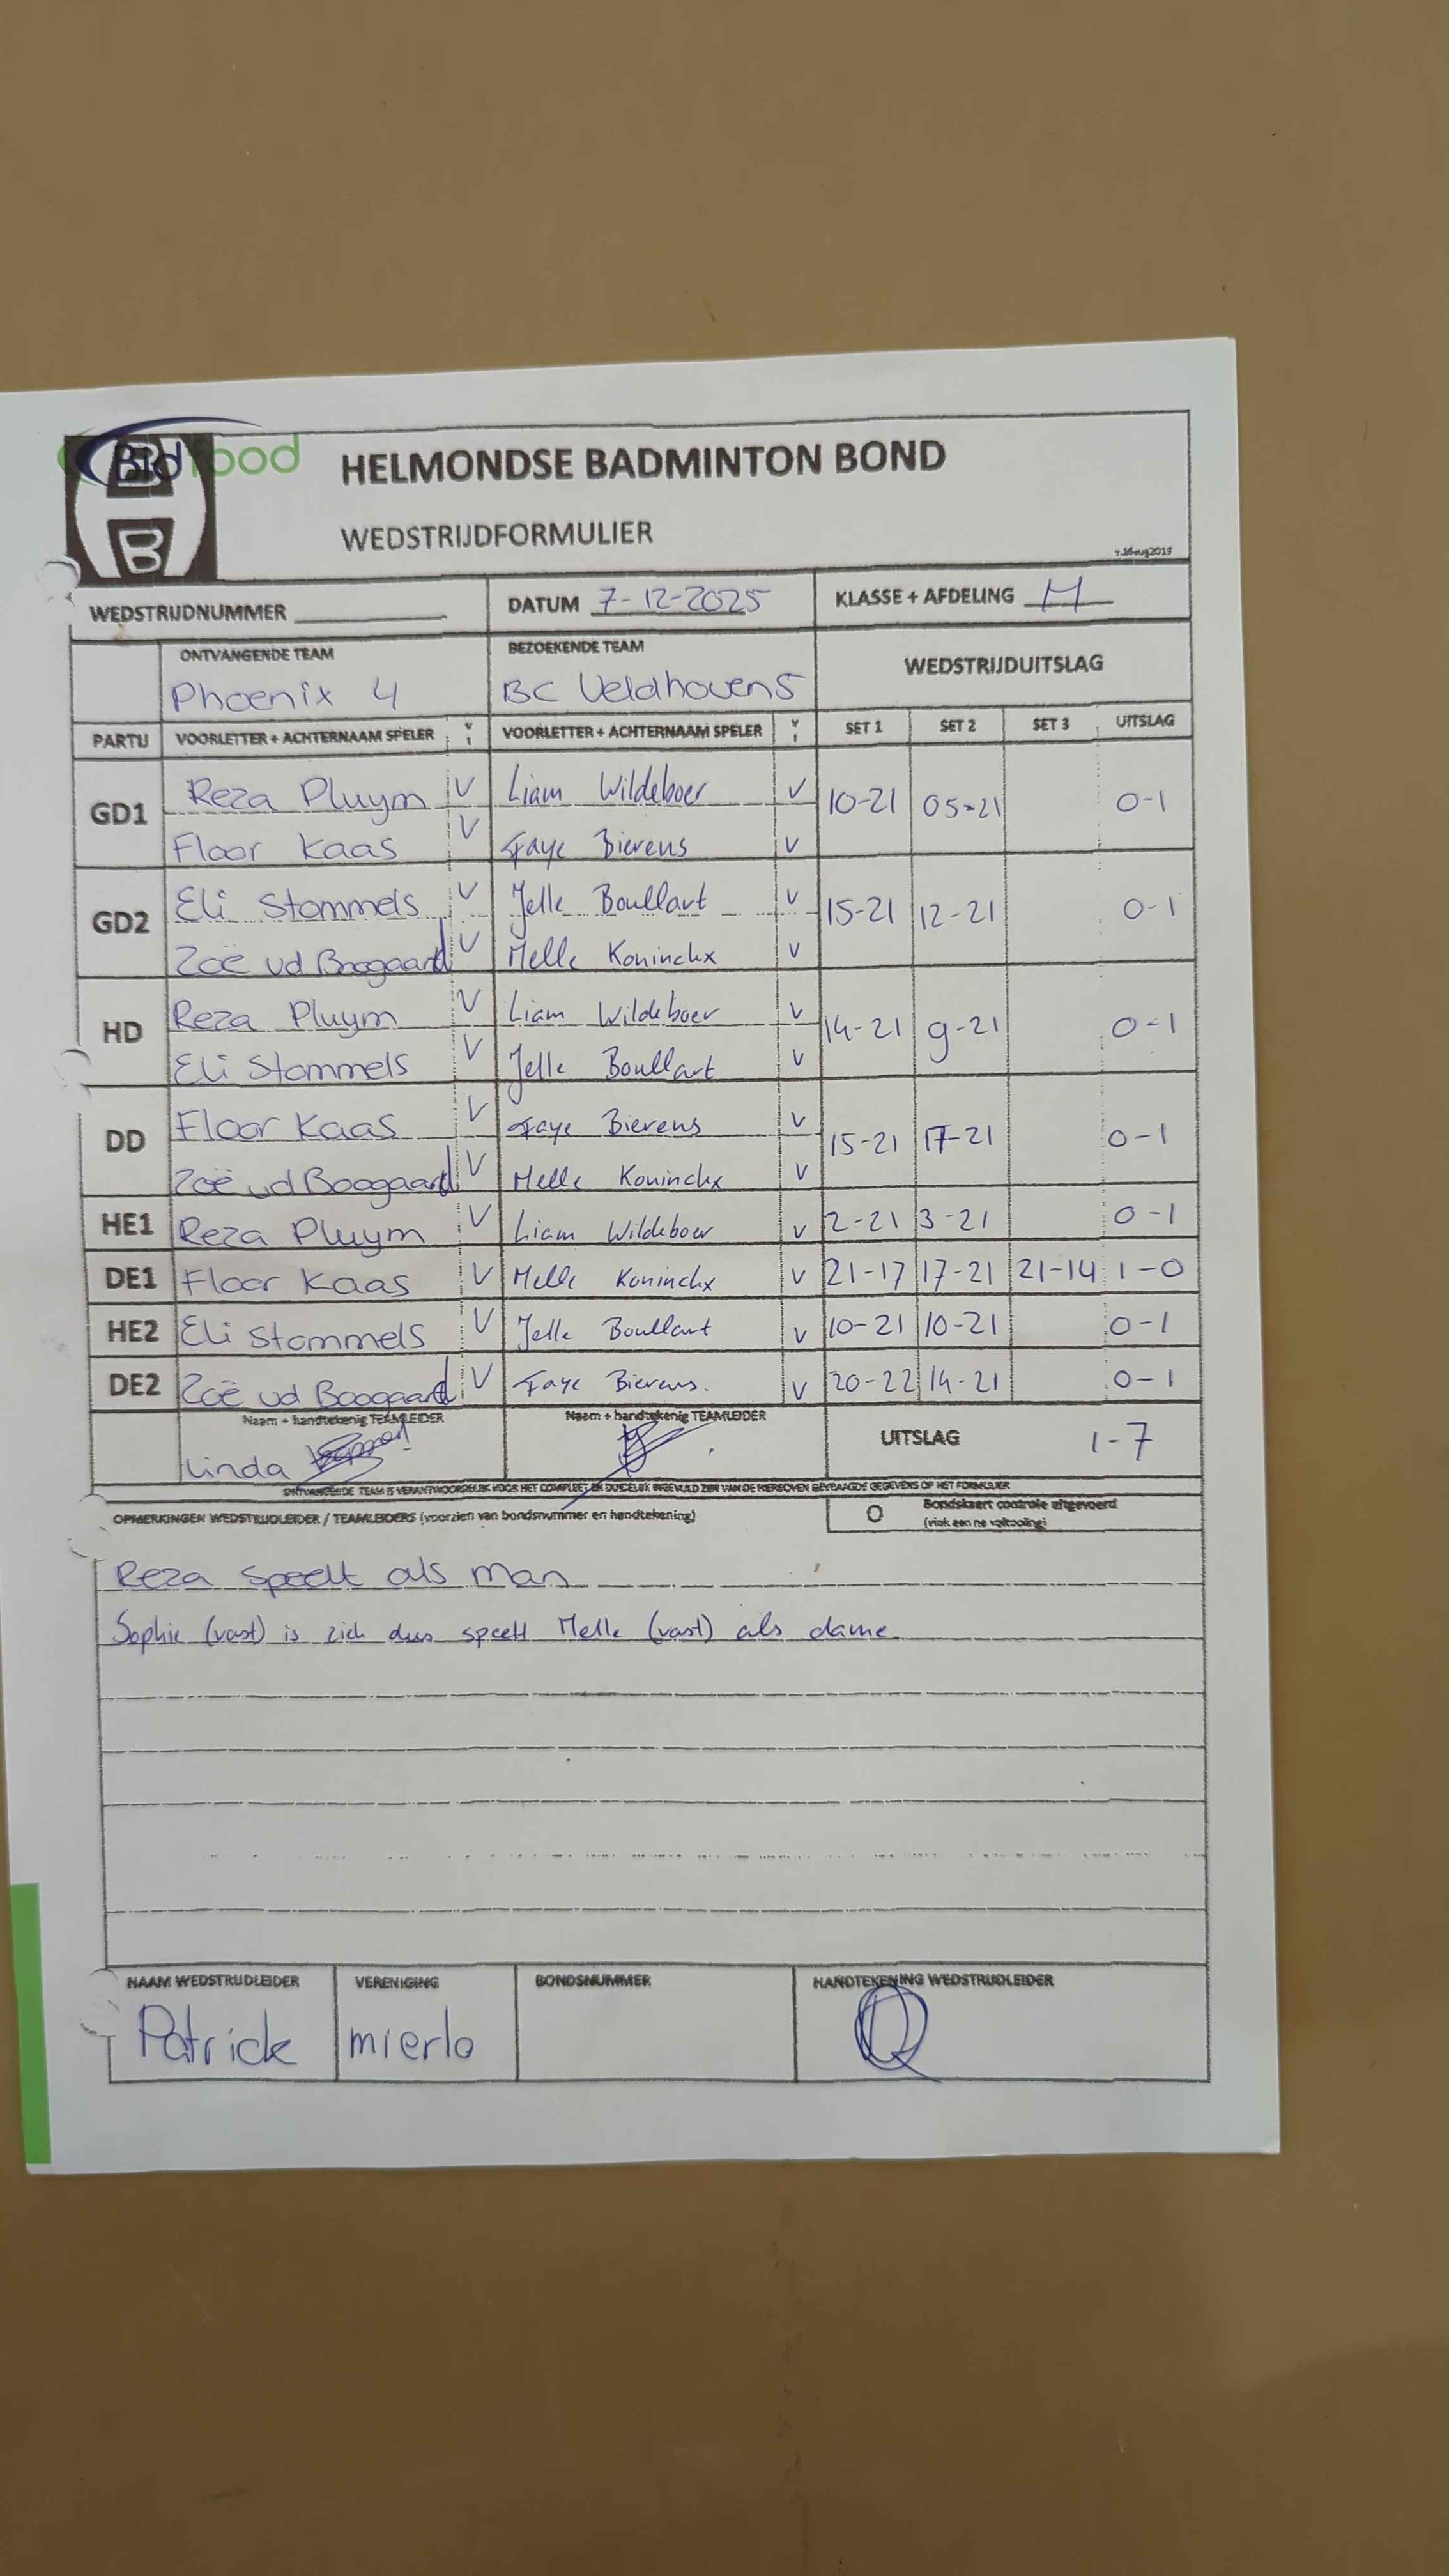 Bidfood
HELMONDSE BADMINTON BOND
WEDSTRIJDFORMULIER
WEDSTRIJDNUMMER
DATUM 7-12-2025
KLASSE + AFDELING H
ONTVANGENDE TEAM
BEZOEKENDE TEAM
WEDSTRIJDUITSLAG
Phoenix 4
BC Veldhoven 5
PARTIJ VOORLETTER + ACHTERNAAM SPELER V I VOORLETTER + ACHTERNAAM SPELER V I SET 1 SET 2 SET 3 UITSLAG
GD1 Reza Pluym V Liam Wildeboer V 10-21 05-21 0-1
Floor Kaas V Faye Bierens V
GD2 Eli Stommels V Jelle Boullart V 15-21 12-21 0-1
Zoë vd Boogaard V Melle Koninckx V
HD Reza Pluym V Liam Wildeboer V 14-21 9-21 0-1
Eli Stommels V Jelle Boullart V
DD Floor Kaas V Faye Bierens V 15-21 17-21 0-1
Zoë vd Boogaard V Melle Koninckx V
HE1 Reza Pluym V Liam Wildeboer V 2-21 3-21 0-1
DE1 Floor Kaas V Melle Koninckx V 21-17 17-21 21-14 1-0
HE2 Eli Stommels V Jelle Boullart V 10-21 10-21 0-1
DE2 Zoë vd Boogaard V Faye Bierens. V 20-22 14-21 0-1
Naam + handtekenig TEAMLEIDER
Naam + handtekenig TEAMLEIDER
UITSLAG 1-7
Linda
ONTVANGENDE TEAM IS VERANTWOORDELIJK VOOR HET COMPLEET EN DUIDELIJK INGEVULD ZIJN VAN DE HIERBOVEN GEVRAAGDE GEGEVENS OP HET FORMULIER
OPMERKINGEN WEDSTRIJDLEIDER / TEAMLEIDERS (voorzien van bondsnummer en handtekening)
O Bondskaart controle uitgevoerd
Reza speelt als man
Sophie (vast) is zich dus speelt Melle (vast) als dame
NAAM WEDSTRIJDLEIDER
VERENIGING
BONDSNUMMER
HANDTEKENING WEDSTRIJDLEIDER
Patrick
mierlo